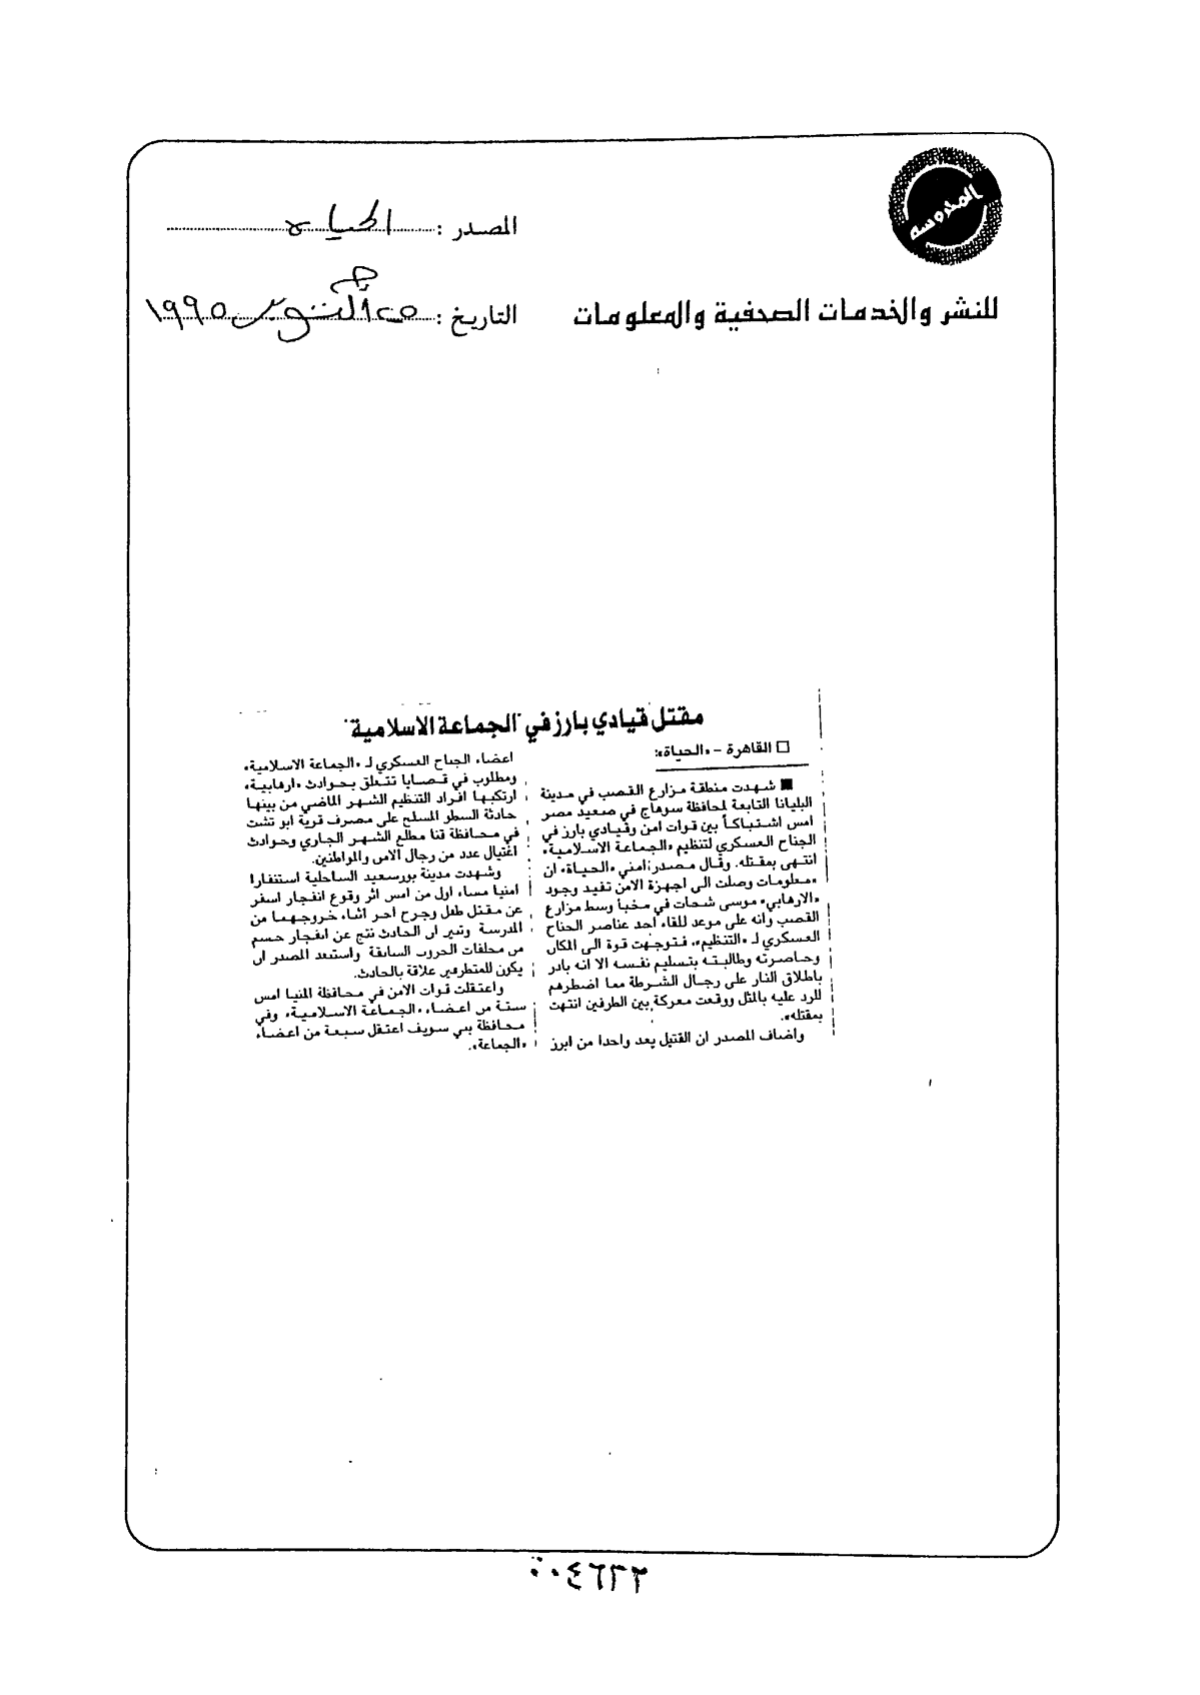 المحروسة
المصدر : الحياة
للنشر والخدمات الصحفية والمعلومات
التاريخ : ٢٥ أكتوبر ١٩٩٥
مقتل قيادي بارز في "الجماعة الاسلامية"
□ القاهرة – «الحياة»:
■ شهدت منطقة مزارع القصب في مدينة
البليانا التابعة لمحافظة سوهاج في صعيد مصر
امس اشتباكاً بين قوات امن وقيادي بارز في
الجناح العسكري لتنظيم «الجماعة الاسلامية»
انتهى بمقتله. وقال مصدر امني «الحياة» ان
«معلومات وصلت الى اجهزة الامن تفيد وجود
«الارهابي» موسى شحات في مخبأ وسط مزارع
القصب وانه على موعد للقاء أحد عناصر الجناح
العسكري لـ «التنظيم»، فتوجهت قوة الى المكان
وحاصرته وطالبته بتسليم نفسه الا انه بادر
باطلاق النار على رجال الشرطة مما اضطرهم
للرد عليه بالمثل ووقعت معركة بين الطرفين انتهت
بمقتله».
واضاف المصدر ان القتيل يعد واحدا من ابرز
اعضاء الجناح العسكري لـ «الجماعة الاسلامية»
ومطلوب في قضايا تتعلق بحوادث «ارهابية»
ارتكبها افراد التنظيم الشهر الماضي من بينها
حادثة السطو المسلح على مصرف قرية ابو تشت
في محافظة قنا مطلع الشهر الجاري وحوادث
اغتيال عدد من رجال الامن والمواطنين.
وشهدت مدينة بورسعيد الساحلية استنفارا
امنيا مساء اول من امس اثر وقوع انفجار اسفر
عن مقتل طفل وجرح آخر اثناء خروجهما من
المدرسة وتبين ان الحادث نتج عن انفجار جسم
من مخلفات الحروب السابقة واستبعد المصدر ان
يكون للمتطرفين علاقة بالحادث.
واعتقلت قوات الامن في محافظة المنيا امس
ستة من اعضاء «الجماعة الاسلامية» وفي
محافظة بني سويف اعتقل سبعة من اعضاء
«الجماعة».
٠٠٤٦٣٢